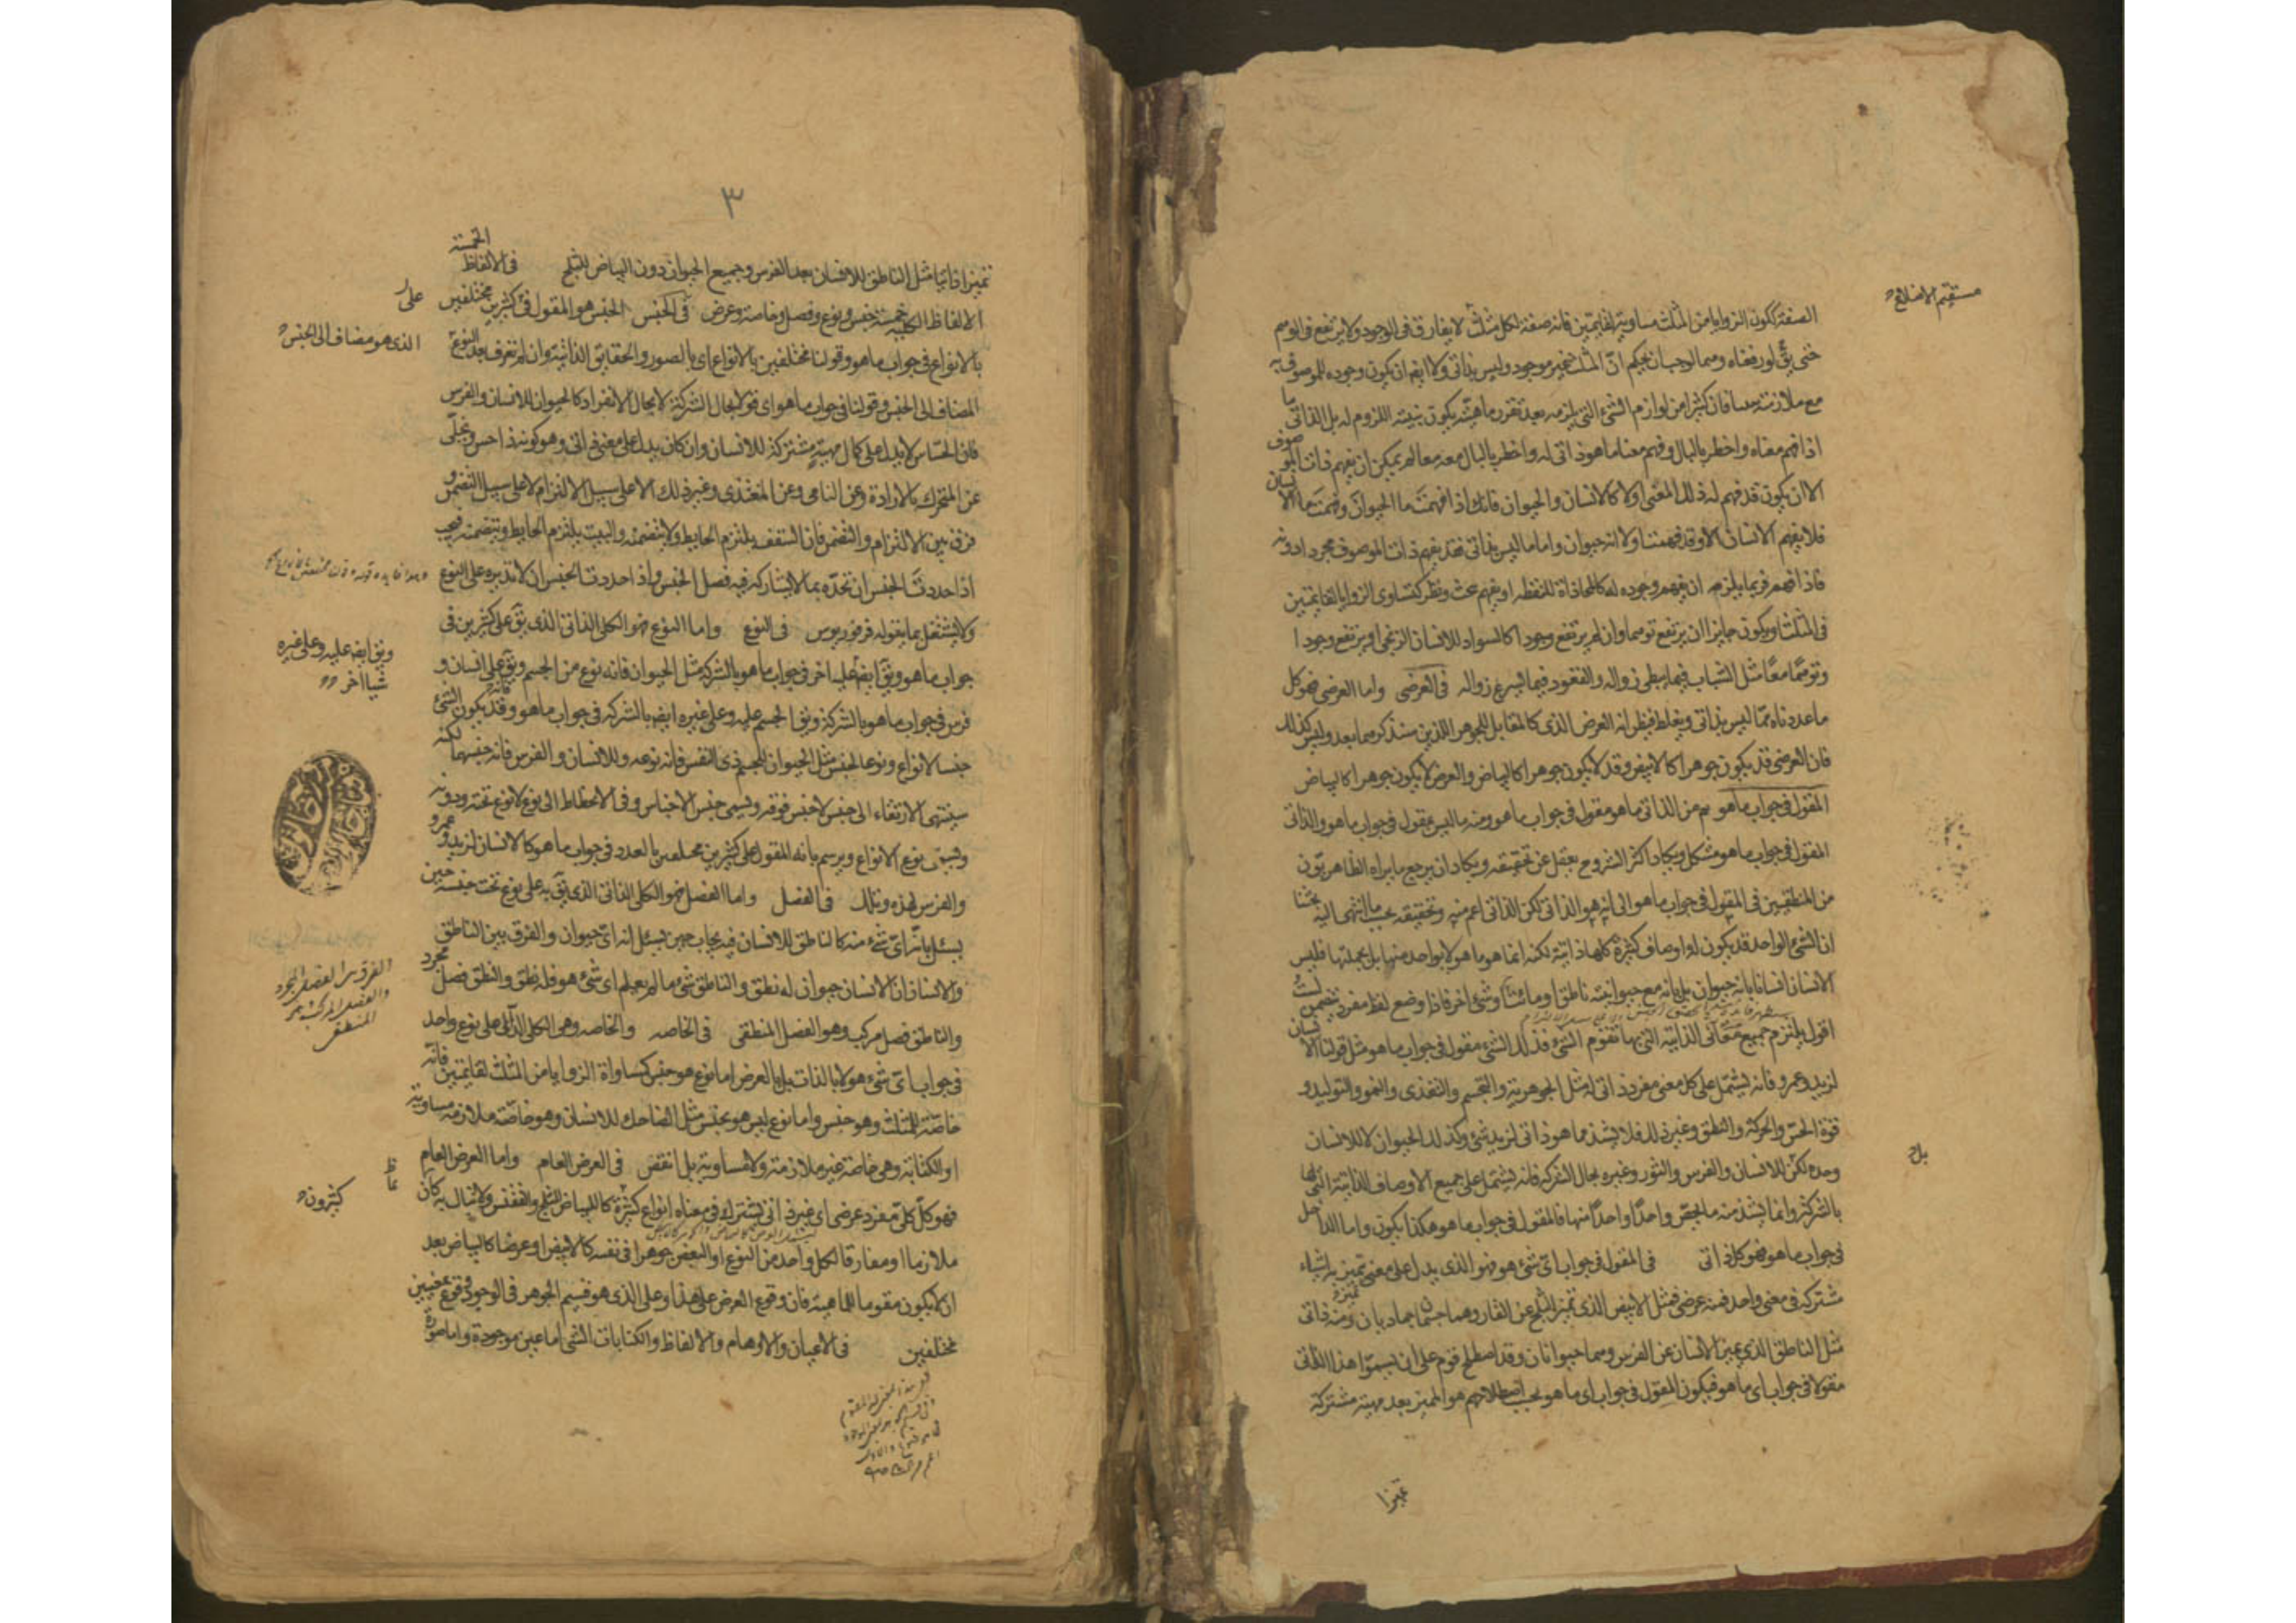 الصفة ككون الزوايا من المثلث مساوية لقايمتين فانه صفة لكل مثلث لا يفارق فى الوجود ولا يرتفع فى الوهم
حتى يق لو رفعناه وهما لوجب ان يحكم ان المثلث غير موجود وليس بذاتى ولا ايض ان يكون وجوده للموصوف به
مع ملازمته بينا فان كثيرا من لوازم الشئ التى يلزمه بعد تقرر ماهيته يكون بينة اللزوم له بل الذاتى ما
اذا فهم معناه واخطر بالبال وفهم معنا ما هو ذاتى له واخطر بالبال معه معا لم يمكن ان يفهم ذات الموصوف
الا ان يكون قد فهم له ذلك المعنى اولا كالانسان والحيوان فانك اذا فهمت ما الحيوان وفهمت ما الانسان
فلا يفهم الانسان الا وقد فهمت اولا انه حيوان واما ما ليس بذاتى فقد يفهم ذات الموصوف مجردا دونه
فاذا فهم فربما يلزمه ان يفهم وجوده له كالمحاذاة للنقطة او يفهم بحث ونظر كتساوى الزوايا لقايمتين
فى المثلث او يكون جايزا ان يرتفع توهما وان لم يرتفع وجودا كالسواد للانسان الزنجى او يرتفع وجودا
وتوهما معا مثل الشباب فيما يبطئ زواله والقعود فيما يسرع زواله فى العرضى واما العرضى فهو كل
ما عددناه مما ليس بذاتى ويغلط فيظن انه العرض الذى كالمقابل للجوهر اللذين سنذكرهما بعد وليس كذلك
فان العرضى قد يكون جوهرا كالابيض وقد لا يكون جوهرا كالبياض والعرض لا يكون جوهرا كالبياض
المقول فى جواب ما هو ثم من الذاتى ما هو مقول فى جواب ما هو ومنه ما ليس بمقول فى جواب ما هو والذاتى
المقول فى جواب ما هو مشكل ويكاد اكثر الشروح يغفل عن تحقيقه ويكاد ان يرجع ما يراه الظاهريون
من المنطقيين فى المقول فى جواب ما هو الى انه هو الذاتى لكن الذاتى اعم منه وتحقيقه بحسب ما انتهى اليه بحثنا
ان الشئ الواحد قد يكون له اوصاف كثيرة كلها ذاتية لكنه انما هو ما هو لا بواحد منها بل بجملتها فليس
الانسان انسانا بانه حيوان بل بانه مع حيوانيته ناطق او مائت او شئ اخر فاذا وضع لفظ مفرد يتضمن لست
اقول يلتزم جميع معانى الذاتية التى بها تقوم الشئ فذلك الشئ مقول فى جواب ما هو مثل قولنا الانسان
لزيد وعمرو فانه يشتمل على كل معنى مفرد ذاتى له مثل الجوهرية والتجسم والتغذى والنمو والتوليد و
قوة الحس والحركة والنطق وغير ذلك فلا يشذ مما هو ذاتى لزيد شئ وكذلك الحيوان لا للانسان
وحده لكن للانسان والفرس والثور وغيره بحال الشركة فانه يشتمل على جميع الاوصاف الذاتية التى لها
بالشركة وانما يشذ منه ما يخص واحدا واحدا منها فالمقول فى جواب ما هو هكذا يكون واما الداخل
فى جواب ما هو فهو كل ذاتى فى المقول فى جواب اى شئ هو فهو الذى يدل على معنى تميز به اشياء
مشتركة فى معنى واحد فمنه عرضى فمثل الابيض الذى تميز الثلج عن القار وهما جسمان جماديان ومنه ذاتى
مثل الناطق الذى يميز الانسان عن الفرس وهما حيوانان وقد اصطلح قوم على ان يسموا هذا الذاتى
مقولا فى جواب اى ما هو فيكون المقول فى جواب اى ما هو بحسب اصطلاحهم هو المميز بعد مهية مشتركة
مستقيم الاضلاع
بل
تميزا
٣
تميزا ذاتيا مثل الناطق للانسان بعد الفرس وجميع الحيوان دون البياض للثلج فى الالفاظ الخمسة
الالفاظ الكلية خمسة جنس ونوع وفصل وخاصة وعرض فى الجنس الجنس هو المقول فى كثيرين مختلفين
بالانواع فى جواب ما هو وقولنا مختلفين بالانواع اى بالصور والحقايق الذاتية وان لم تعرف بعد النوع
المضاف الى الجنس وقولنا فى جواب ما هو اى قولا بحال الشركة لا بحال الانفراد كالحيوان للانسان والفرس
فان الحساس لا يدل على كمال مهية مشتركة للانسان وان كان يدل على معنى ذاتى وهو كونه ذا حس ويخلى
عن المتحرك بالارادة وعن النامى وعن المغتذى وغير ذلك الا على سبيل الالتزام لا على سبيل التضمن و
فرق بين الالتزام والتضمن فان السقف يلتزم الحايط ولا يتضمنه والبيت يلتزم الحايط ويتضمنه فيجب
اذا حددت الجنس ان تحده بما لا يشاركه فيه فصل الجنس واذا حددت الجنس ان لا تديره على النوع
ولا يشتغل بما يقوله فرفوريوس فى النوع واما النوع فهو الكلى الذاتى الذى يق على كثيرين فى
جواب ما هو ويق ايض عليه اخر فى جواب ما هو بالشركة مثل الحيوان فانه نوع من الجسم ويق على انسان و
فرس فى جواب ما هو بالشركة ويق الجسم عليه وعلى غيره ايض بالشركة فى جواب ما هو وقد يكون الشئ
جنسا لانواع ونوعا لجنس مثل الحيوان للجسم ذى النفس فانه نوعه وللانسان والفرس فانه جنسهما لكنه
ينتهى الارتقاء الى جنس لا جنس فوقه ويسمى جنس الاجناس وفى الانحطاط الى نوع لا نوع تحته ودونه
ويسمى نوع الانواع ويرسم بانه المقول على كثيرين مختلفين بالعدد فى جواب ما هو كالانسان لزيد وعمرو
والفرس لهذه وتلك فى الفصل واما الفصل فهو الكلى الذاتى الذى يق به على نوع تحت جنسه حين
يسئل بانه اى شئ منه كالناطق للانسان فيه يجاب حين يسئل انه اى حيوان والفرق بين الناطق
والانسان ان الانسان حيوان له نطق والناطق شئ ما لم يعلم اى شئ هو فله نطق والنطق فصل مجرد
والناطق فصل مركب وهو الفصل المنطقى فى الخاصة والخاصة وهى الكلى الدال على نوع واحد
فى جواب اى شئ هو لا بالذات بل بالعرض اما نوع هو جنس كمساواة الزوايا من المثلث لقايمتين فانه
خاصة للمثلث وهو جنس واما نوع ليس هو بجنس مثل الضاحك للانسان وهو خاصة ملازمة مساوية
او الكتابة وهى خاصة غير ملازمة ولا مساوية بل انقص فى العرض العام واما العرض العام
فهو كل كلى مفرد عرضى اى غير ذاتى يشترك فى معناه انواع كثيرة كالبياض للثلج والققنس ولا نبال به كان
ملازما او مفارقا لكل واحد من النوع او البعض جوهرا فى نفسه كالابيض او عرضا كالبياض بعد
ان لا يكون مقوما للماهية فان وقوع العرض على هذا وعلى الذى هو قسيم الجوهر فى الوجود وقوع بمعنيين
مختلفين فى الاعيان والاوهام والالفاظ والكتابات الشئ اما عين موجودة واما صورة
على
الذى هو مضاف الى الجنس
ويق ايض عليه وعلى غيره
شيئا اخر
الفرق بين الفصل المجرد
والفصل المركب هو
المنطقى
كثيرون